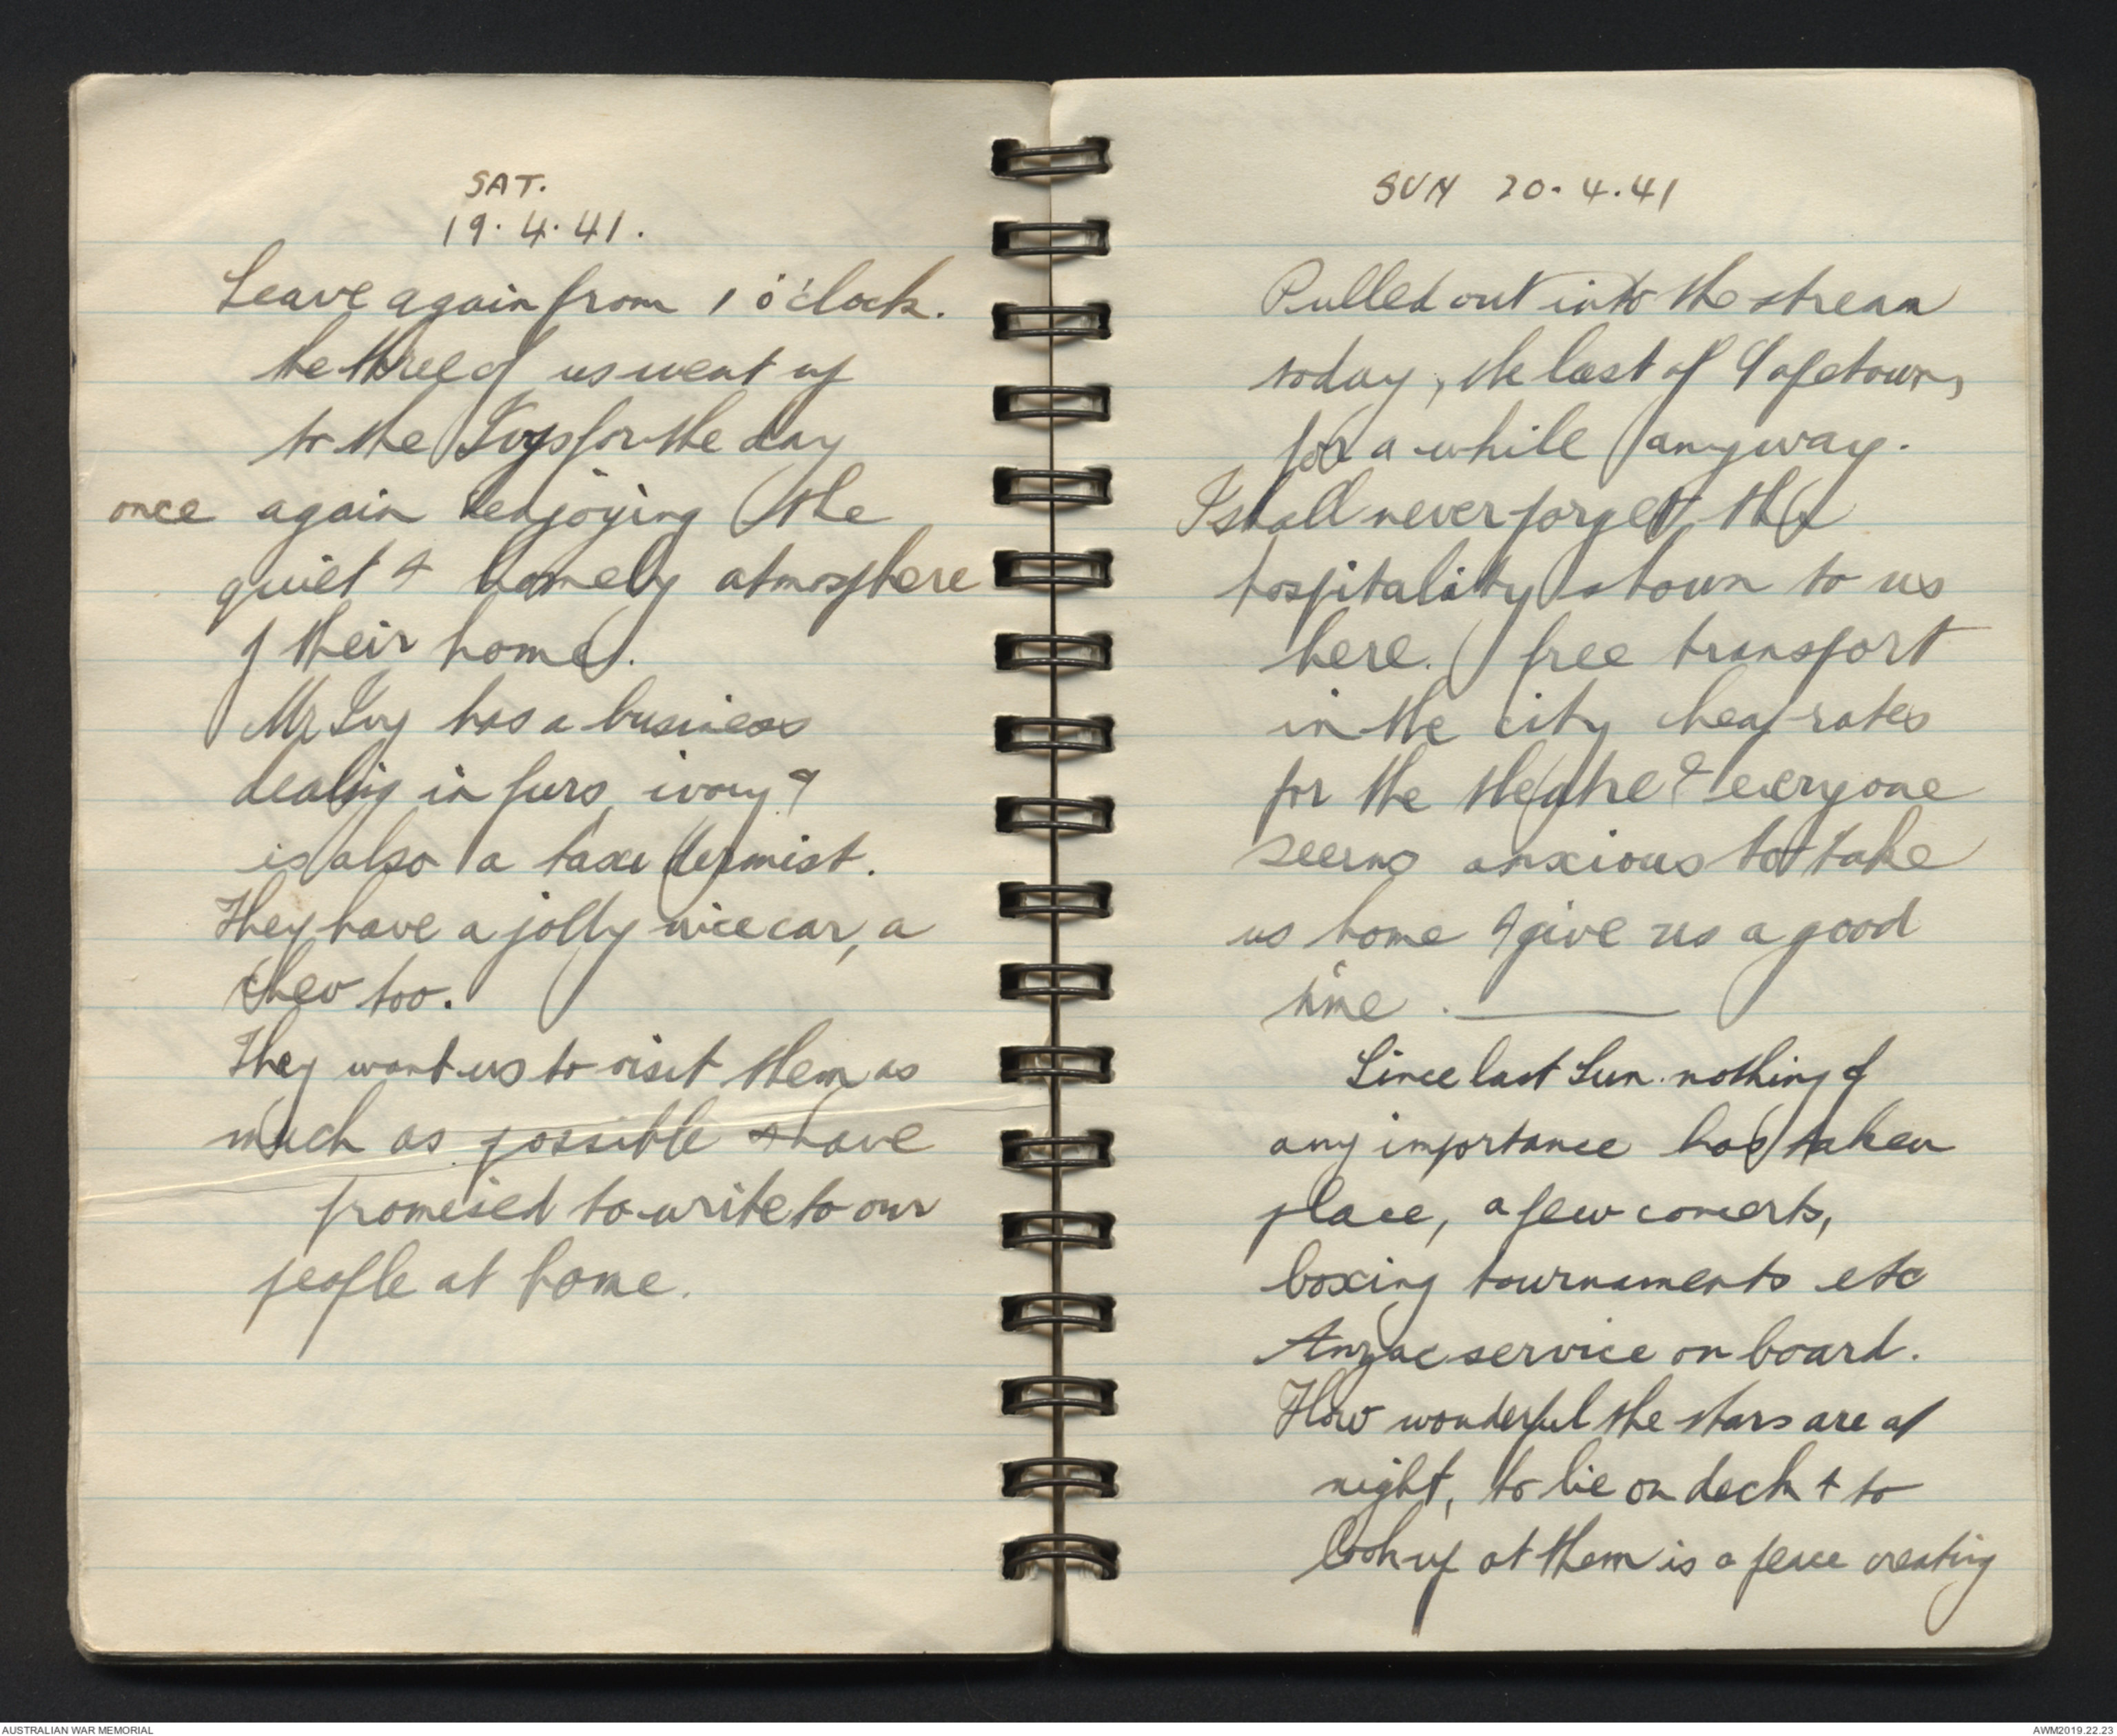 SAT.
19.4.41.
Leave again from 1 o'clock.
the three of us went up
to the Ivys for the day
once again enjoying the
quiet & homely atmosphere
of their home.
Mr Ivy has a business
dealing in furs, ivory &
is also a taxidermist.
They have a jolly nice car, a
chev too.
They want us to visit them as
much as possible & have
promised to write to our
people at home.
SUN 20.4.41
Pulled out into the stream
today, the last of Capetown,
for a while anyway.
I shall never forget the
hospitality shown to us
here. free transport
in the city cheap rates
for the theatre & everyone
seems anxious to take
us home & give us a good
time.
Since last Sun. nothing of
any importance has taken
place, a few concerts,
boxing tournaments etc
Anzac service on board.
How wonderful the stars are at
night, to lie on deck & to
look up at them is a peace creating
AUSTRALIAN WAR MEMORIAL
AWM2019.22.23